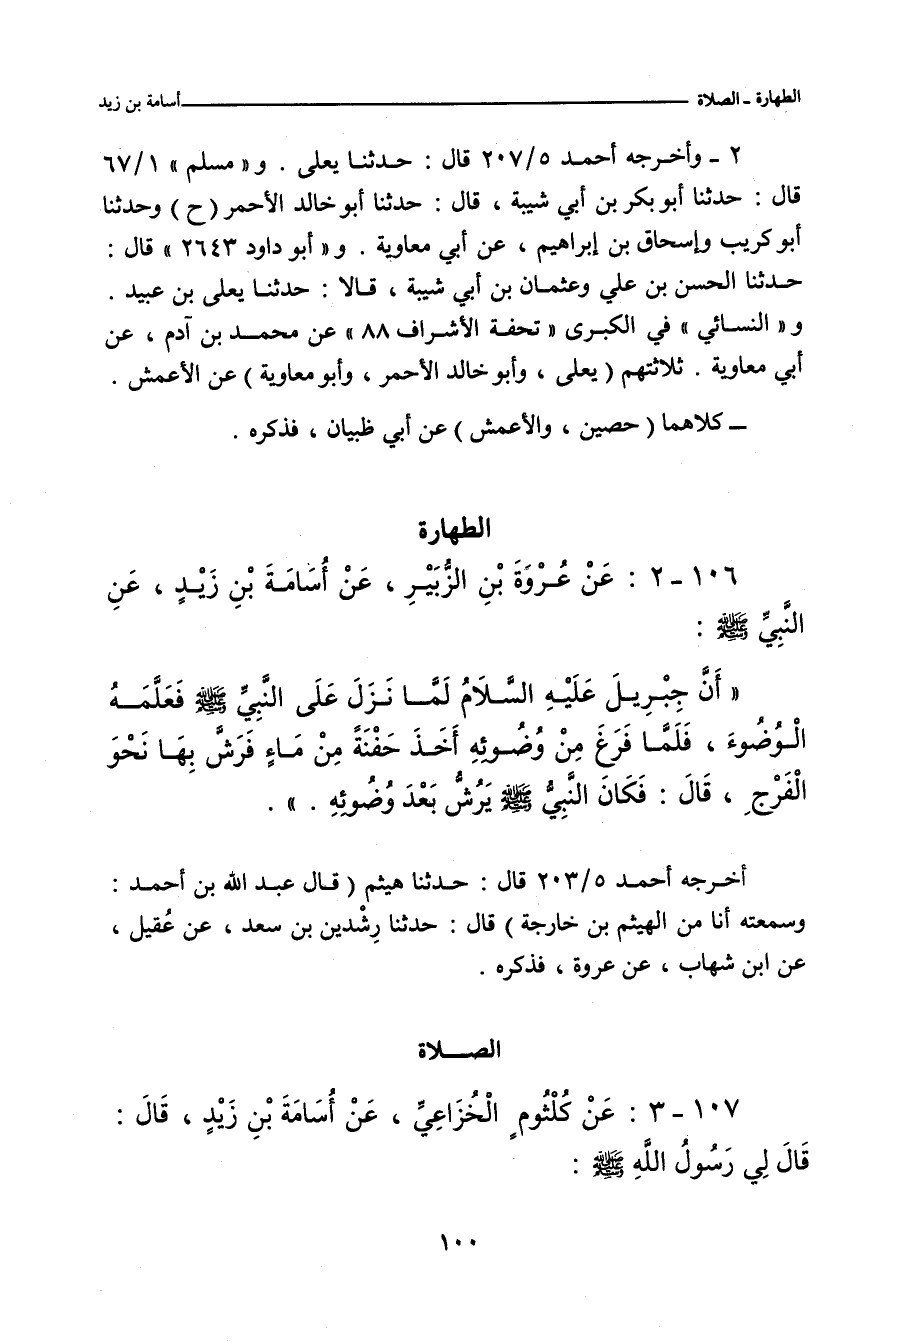 الطهارة ـ الصلاة ــــــ أسامة بن زيد
٢ ـ وأخرجه أحمد ٢٠٧/٥ قال : حدثنا يعلى . و« مسلم » ٦٧/١
قال : حدثنا أبو بكر بن أبي شيبة ، قال : حدثنا أبو خالد الأحمر (ح) وحدثنا
أبو كريب وإسحاق بن إبراهيم ، عن أبي معاوية . و« أبو داود ٢٦٤٣ » قال :
حدثنا الحسن بن علي وعثمان بن أبي شيبة ، قالا : حدثنا يعلى بن عبيد .
و« النسائي » في الكبرى « تحفة الأشراف ٨٨ » عن محمد بن آدم ، عن
أبي معاوية . ثلاثتهم ( يعلى ، وأبو خالد الأحمر ، وأبو معاوية ) عن الأعمش .
ــ كلاهما ( حصين ، والأعمش ) عن أبي ظبيان ، فذكره .
الطهارة
١٠٦ ـ ٢ : عَنْ عُرْوَةَ بْنِ الزُّبَيْرِ ، عَنْ أُسَامَةَ بْنِ زَيْدٍ ، عَنِ
النَّبِيِّ ﷺ :
« أَنَّ جِبْرِيلَ عَلَيْهِ السَّلَامُ لَمَّا نَزَلَ عَلَى النَّبِيِّ ﷺ فَعَلَّمَهُ
الْوُضُوءَ ، فَلَمَّا فَرَغَ مِنْ وُضُوئِهِ أَخَذَ حَفْنَةً مِنْ مَاءٍ فَرَشَّ بِهَا نَحْوَ
الْفَرْجِ ، قَالَ : فَكَانَ النَّبِيُّ ﷺ يَرُشُّ بَعْدَ وُضُوئِهِ . » .
أخرجه أحمد ٢٠٣/٥ قال : حدثنا هيثم ( قال عبد الله بن أحمد :
وسمعته أنا من الهيثم بن خارجة ) قال : حدثنا رِشْدين بن سعد ، عن عُقيل ،
عن ابن شهاب ، عن عروة ، فذكره .
الصلاة
١٠٧ ـ ٣ : عَنْ كُلْثُومٍ الْخُزَاعِيِّ ، عَنْ أُسَامَةَ بْنِ زَيْدٍ ، قَالَ :
قَالَ لِي رَسُولُ اللَّهِ ﷺ :
١٠٠